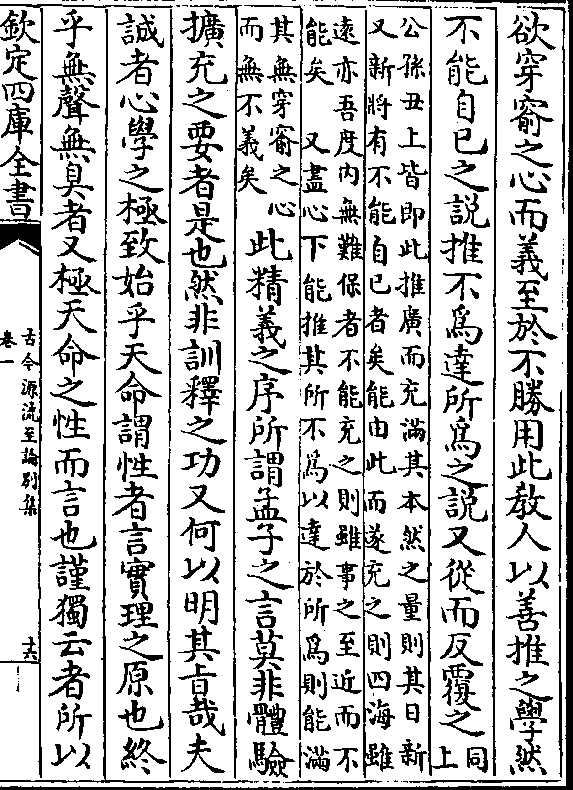 欲穿窬之心而義至於不勝用此教人以善推之學然
不能自已之說推不爲達所爲之說又從而反覆之同上
公孫丑上皆即此推廣而充滿其本然之量則其日新
又新將有不能自已者矣能由此而遂充之則四海雖
遠亦吾度内無難保者不能充之則雖事之至近而不
能矣　又盡心下能推其所不爲以達於所爲則能滿
其無穿窬之心
而無不義矣
此精義之序所謂孟子之言莫非體驗
擴充之要者是也然非訓釋之功又何以明其旨哉夫
誠者心學之極致始乎天命謂性者言實理之原也終
乎無聲無臭者又極天命之性而言也謹獨云者所以
欽定四庫全書
古今源流至論別集
卷一
十六